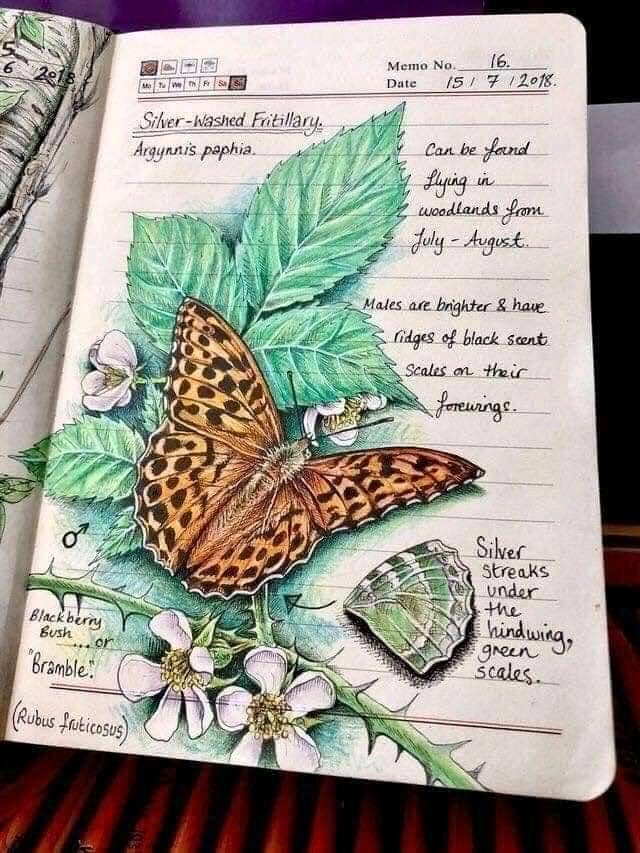 5
6 2018
Memo No. 16.
Date 15 / 7 / 2018.
Mo Tu We Th Fr Sa Su
Silver-Washed Fritillary.
Argynnis paphia.
Can be found
flying in
woodlands from
July - August.
Males are brighter & have
ridges of black scent
scales on their
forewings.
♂
Silver
streaks
under
the
hindwing,
green
scales.
Blackberry
Bush
... or
"Bramble".
(Rubus fruticosus)